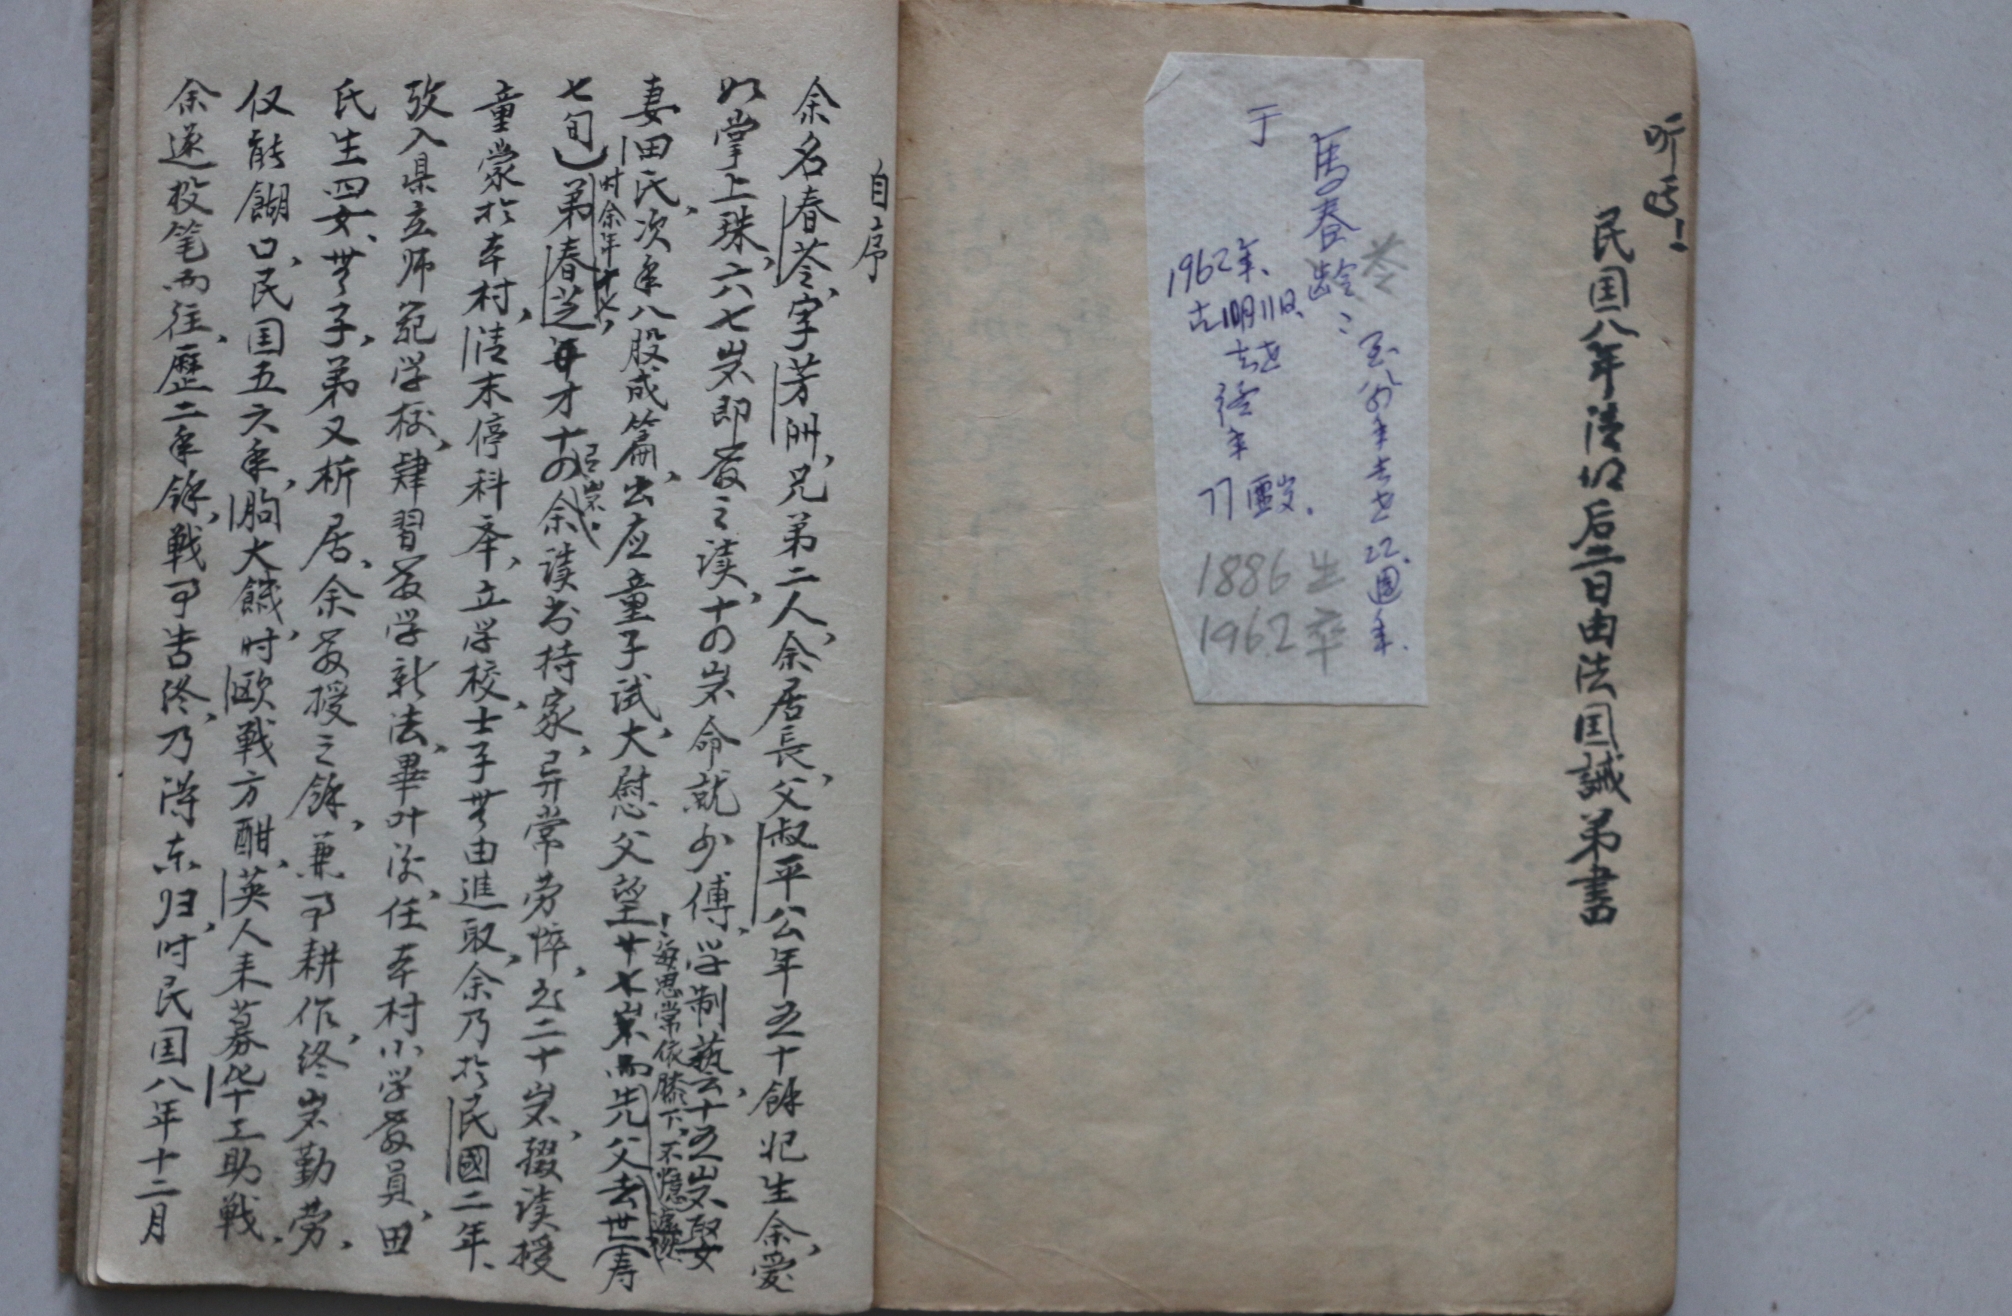 民国八年清明后二日由法国誠弟書
馬春龄
苓
于
1962年
古10月11日
去世
7周年.
1886生
1962卒
自序
余名春苓、字芳洲、兄弟二人、余居長、父叔平公年五十餘始生余、愛
如掌上珠、六七岁即教之读、十四岁命就外傅、学制藝、十五岁娶
妻田氏、次年八股成篇、出应童子試、大慰父望、廿七岁而先父去世(寿
每思常依膝下、不憶
七旬)弟春芝年才十四余读书持家、异常劳悴、二十岁、辍读授
时余年十七、
童蒙於本村、清末停科举、立学校、士子無由進取、余乃於民國二年、
攷入県立师範学校、肄習教学新法、畢业後、任本村小学教員、田
氏生四女、無子、弟又析居、余教授之餘、兼事耕作、终岁勤劳、
仅能餬口、民国五六年、朐大饑、时欧戰方酣、英人来募华工助戦、
余遂投笔而往、歷二年餘、戰事告终、乃得东归、时民国八年十二月